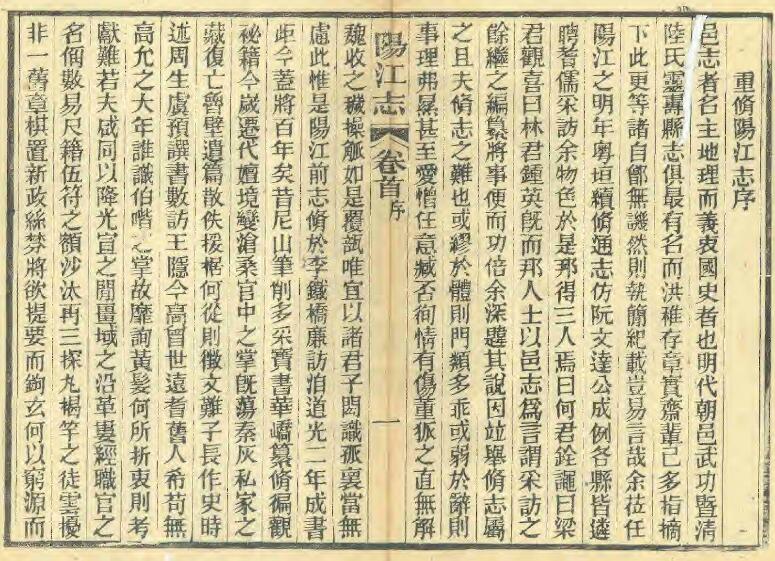 重脩陽江志序
邑志者名主地理而義衷國史者也明代朝邑武功暨清
陸氏靈壽縣志俱最有名而洪稚存章實齋輩已多指摘
下此更等諸自鄶無譏然則執簡紀載豈易言哉余莅任
陽江之明年粵垣續脩通志仿阮文達公成例各縣皆遴
聘耆儒采訪余物色於是邦得三人焉曰何君銓譝曰梁
君觀喜曰林君鍾英旣而邦人士以邑志爲言謂采訪之
餘繼之編纂將事便而功倍余深韙其說因竝舉脩志屬
之且夫脩志之難也或繆於體則門類多乖或弱於辭則
事理弗㬎甚至愛憎任意臧否徇情有傷董狐之直無解
陽江志 卷首 序 一
魏收之穢操觚如是覆瓿唯宜以諸君子閎識孤裏當無
慮此惟是陽江前志脩於李鐵橋廉訪洎道光二年成書
距今蓋將百年矣昔尼山筆削多采寶書華嶠纂脩徧觀
祕籍今歲遷代嬗境變滄桑官中之掌旣蕩秦灰私家之
藏復亡魯壁遺篇散佚援据何從則徵文難子長作史時
述周生虞預譔書數訪王隱今高曾世遠耆舊人希苟無
高允之大年誰識伯喈之掌故靡詢黃髮何所折衷則考
獻難若夫咸同以降光宣之閒畺域之沿革婁經職官之
名偁數易尺籍伍符之額沙汰再三探丸楬竿之徒雲擾
非一舊章棋置新政絲棼將欲提要而鉤玄何以窮源而